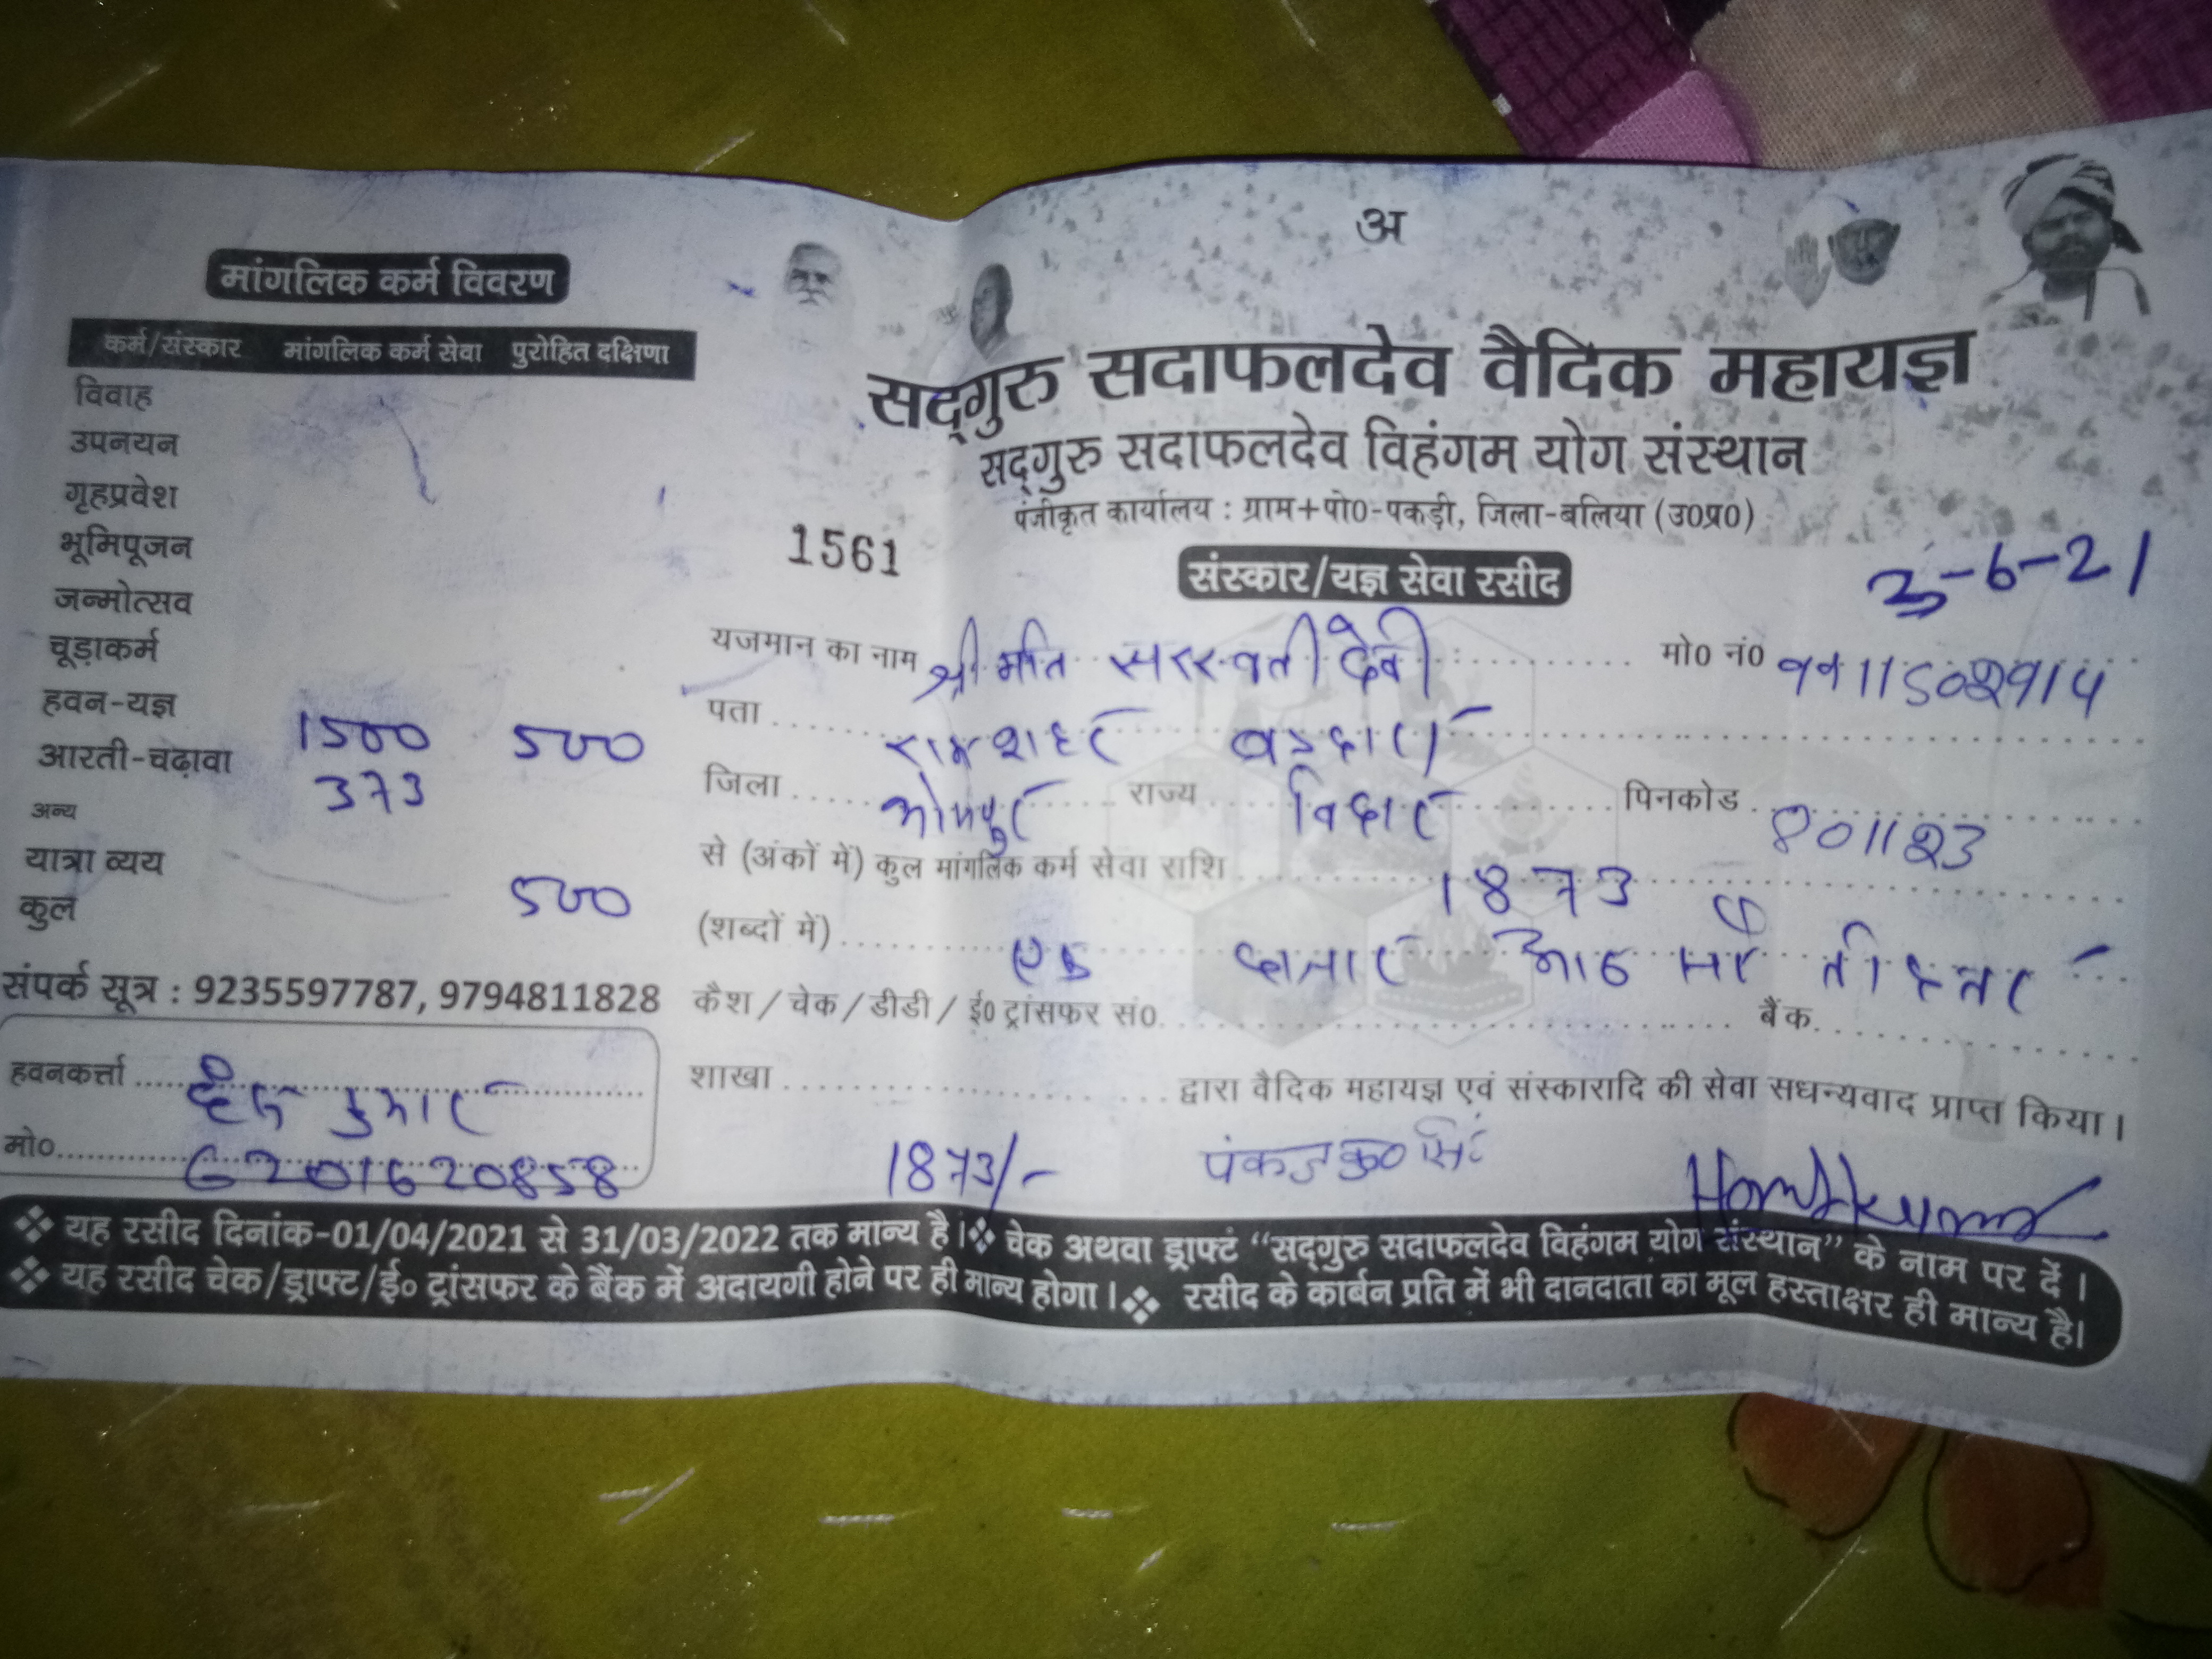 अ
मांगलिक कर्म विवरण
कर्म/संस्कार मांगलिक कर्म सेवा पुरोहित दक्षिणा
विवाह
उपनयन
गृहप्रवेश
भूमिपूजन
जन्मोत्सव
चूड़ाकर्म
हवन-यज्ञ 1500 500
आरती-चढ़ावा 373
अन्य
यात्रा व्यय
कुल 500
संपर्क सूत्र : 9235597787, 9794811828
हवनकर्त्ता कुमार
मो० 6201620858
सद्‌गुरु सदाफलदेव वैदिक महायज्ञ
सद्‌गुरु सदाफलदेव विहंगम योग संस्थान
पंजीकृत कार्यालय : ग्राम+पो0-पकड़ी, जिला-बलिया (उ0प्र0)
1561
संस्कार/यज्ञ सेवा रसीद
3-6-21
यजमान का नाम श्रीमति सरस्वती देवी मो0 नं0
पता रामशहर
जिला भोजपुर राज्य बिहार पिनकोड
से (अंकों में) कुल मांगलिक कर्म सेवा राशि 1873
(शब्दों में) एक हजार आठ सौ
कैश / चेक / डीडी / ई0 ट्रांसफर सं0 बैंक
शाखा द्वारा वैदिक महायज्ञ एवं संस्कारादि की सेवा सधन्यवाद प्राप्त किया ।
1873/- पंकज कु०
❖ यह रसीद दिनांक-01/04/2021 से 31/03/2022 तक मान्य है ।❖ चेक अथवा ड्राफ्ट “सद्‌गुरु सदाफलदेव विहंगम योग संस्थान” के नाम पर दें ।
❖ यह रसीद चेक/ड्राफ्ट/ई० ट्रांसफर के बैंक में अदायगी होने पर ही मान्य होगा ।❖ रसीद के कार्बन प्रति में भी दानदाता का मूल हस्ताक्षर ही मान्य है।